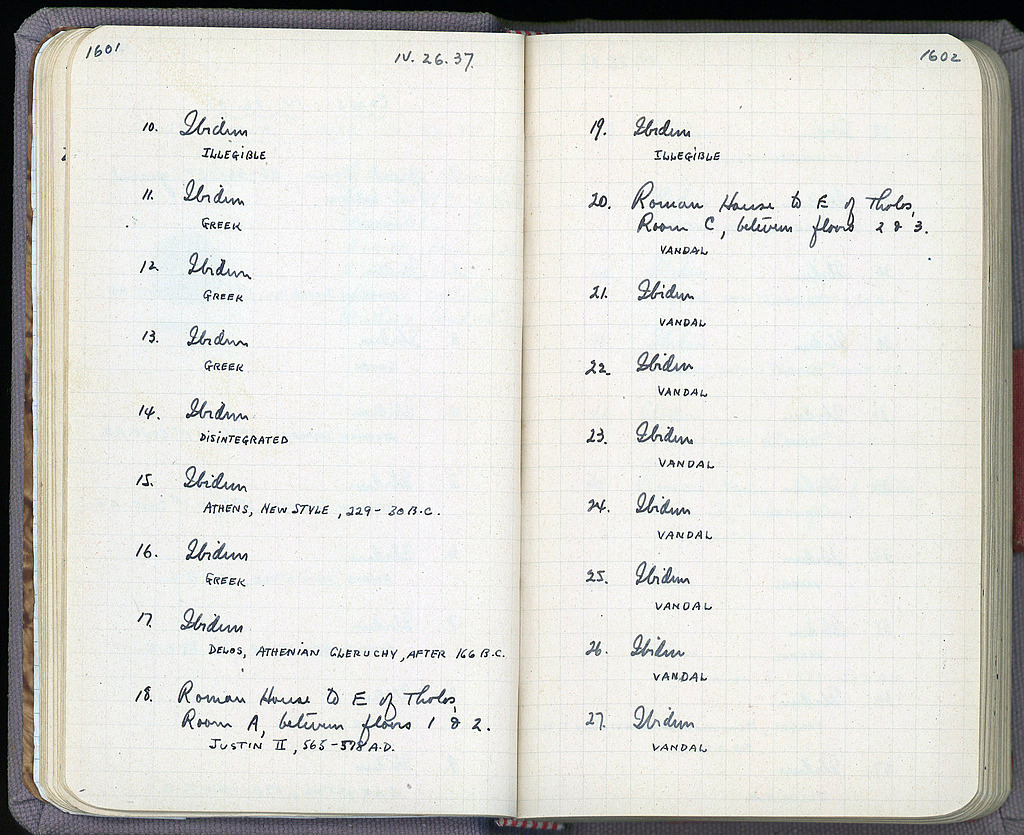 1601
IV. 26. 37.
10. Ibidem
ILLEGIBLE
11. Ibidem
GREEK
12. Ibidem
GREEK
13. Ibidem
GREEK
14. Ibidem
DISINTEGRATED
15. Ibidem
ATHENS, NEW STYLE, 229-30 B.C.
16. Ibidem
GREEK
17. Ibidem
DELOS, ATHENIAN CLERUCHY, AFTER 166 B.C.
18. Roman House to E of Tholos,
Room A, between floors 1 & 2.
JUSTIN II, 565-578 A.D.
1602
19. Ibidem
ILLEGIBLE
20. Roman House to E of Tholos,
Room C, between floors 2 & 3.
VANDAL
21. Ibidem
VANDAL
22. Ibidem
VANDAL
23. Ibidem
VANDAL
24. Ibidem
VANDAL
25. Ibidem
VANDAL
26. Ibidem
VANDAL
27. Ibidem
VANDAL